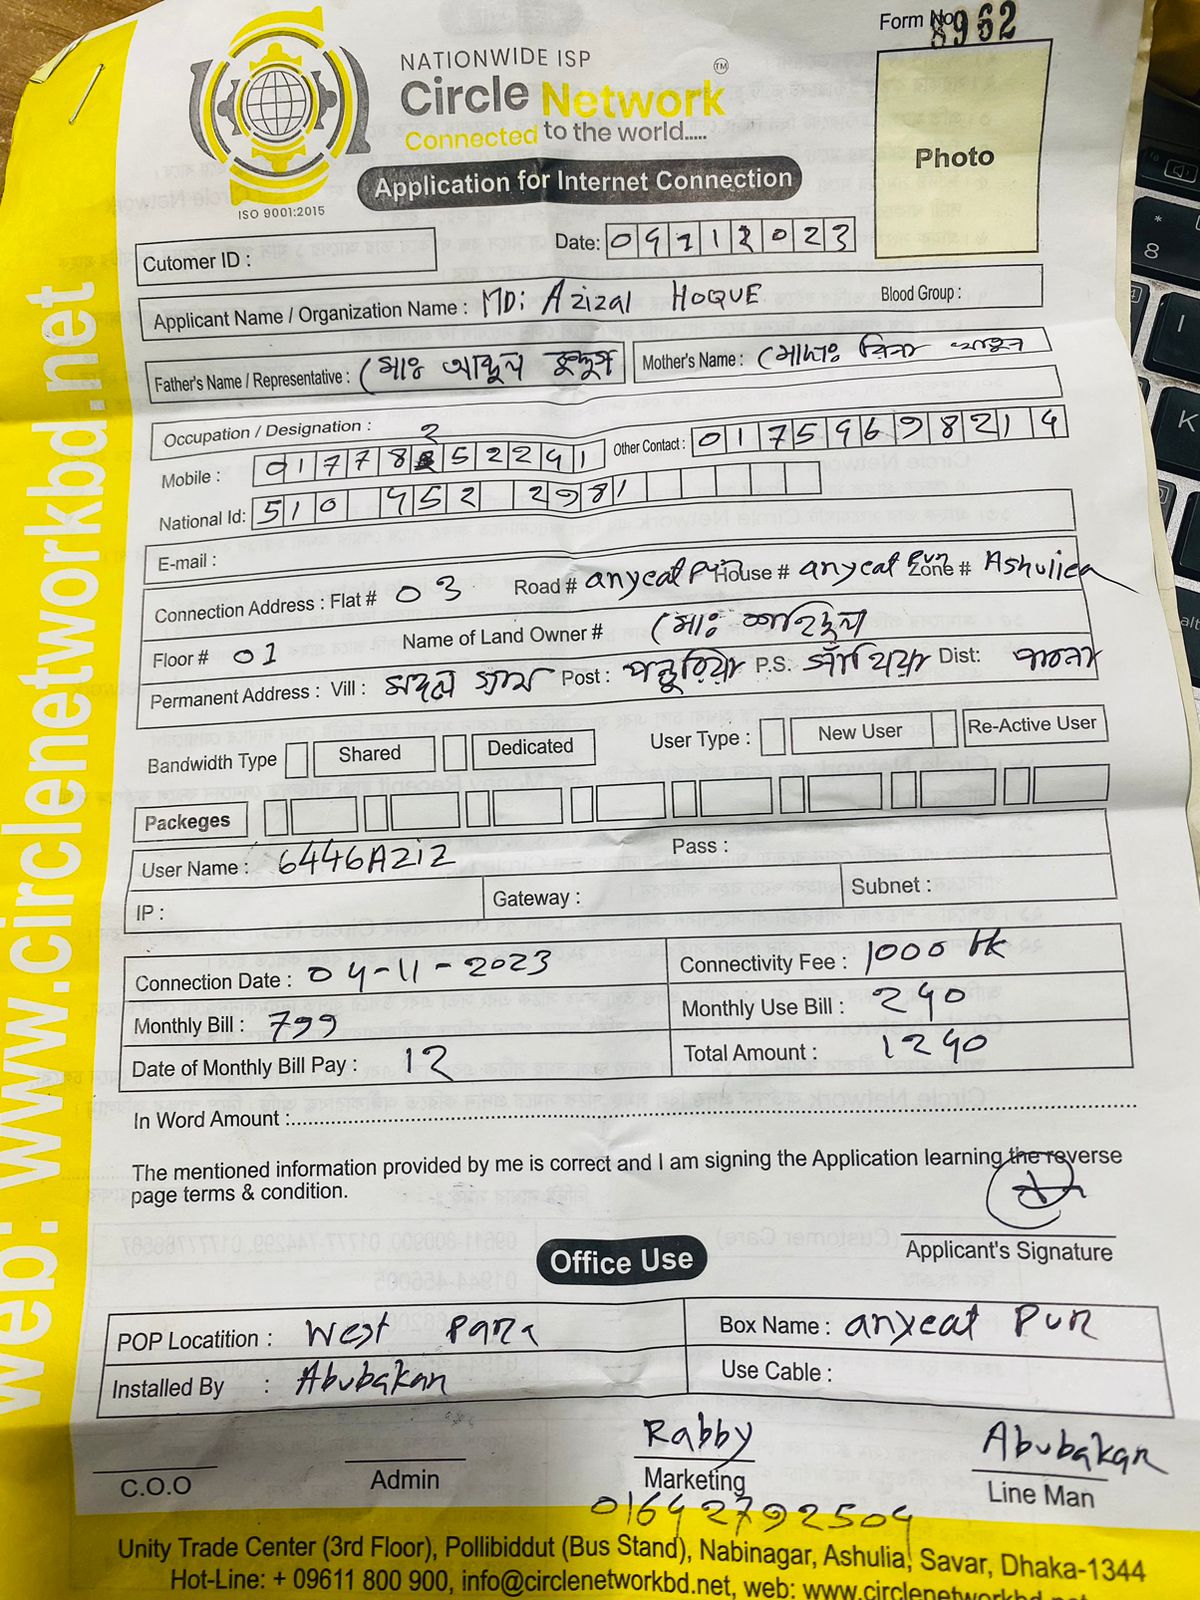 Form No 8962
NATIONWIDE ISP
Circle Network TM
Connected to the world.....
Application for Internet Connection
ISO 9001:2015
Photo
Cutomer ID :
Date: 04112023
Applicant Name / Organization Name : MD: Azizal HOQUE Blood Group :
Father's Name / Representative : মোঃ আব্দুল কুদ্দুস Mother's Name : মোছাঃ রিনা খাতুন
Occupation / Designation :
Mobile : 01778252241 Other Contact : 01759698214
National Id: 510 452 2981
E-mail :
Connection Address : Flat # 03 Road # anyeat Pur House # anyeat Pur Zone # Ashuliea
Floor # 01 Name of Land Owner # মোঃ
Permanent Address : Vill : গ্রাম Post : P.S. সাঁথিয়া Dist: পাবনা
Bandwidth Type Shared Dedicated User Type : New User Re-Active User
Packeges
User Name : 6446Aziz Pass :
IP : Gateway : Subnet :
Connection Date : 04-11-2023 Connectivity Fee : 1000 tk
Monthly Bill : 799 Monthly Use Bill : 240
Date of Monthly Bill Pay : 12 Total Amount : 1240
In Word Amount :
The mentioned information provided by me is correct and I am signing the Application learning the reverse
page terms & condition.
Applicant's Signature
Office Use
POP Locatition : West Para Box Name : anyeat Pur
Installed By : Abubakar Use Cable :
Rabby Abubakar
C.O.O Admin Marketing Line Man
01642792504
Unity Trade Center (3rd Floor), Pollibiddut (Bus Stand), Nabinagar, Ashulia, Savar, Dhaka-1344
Hot-Line: + 09611 800 900, info@circlenetworkbd.net, web: www.circlenetworkbd.net
web: www.circlenetworkbd.net